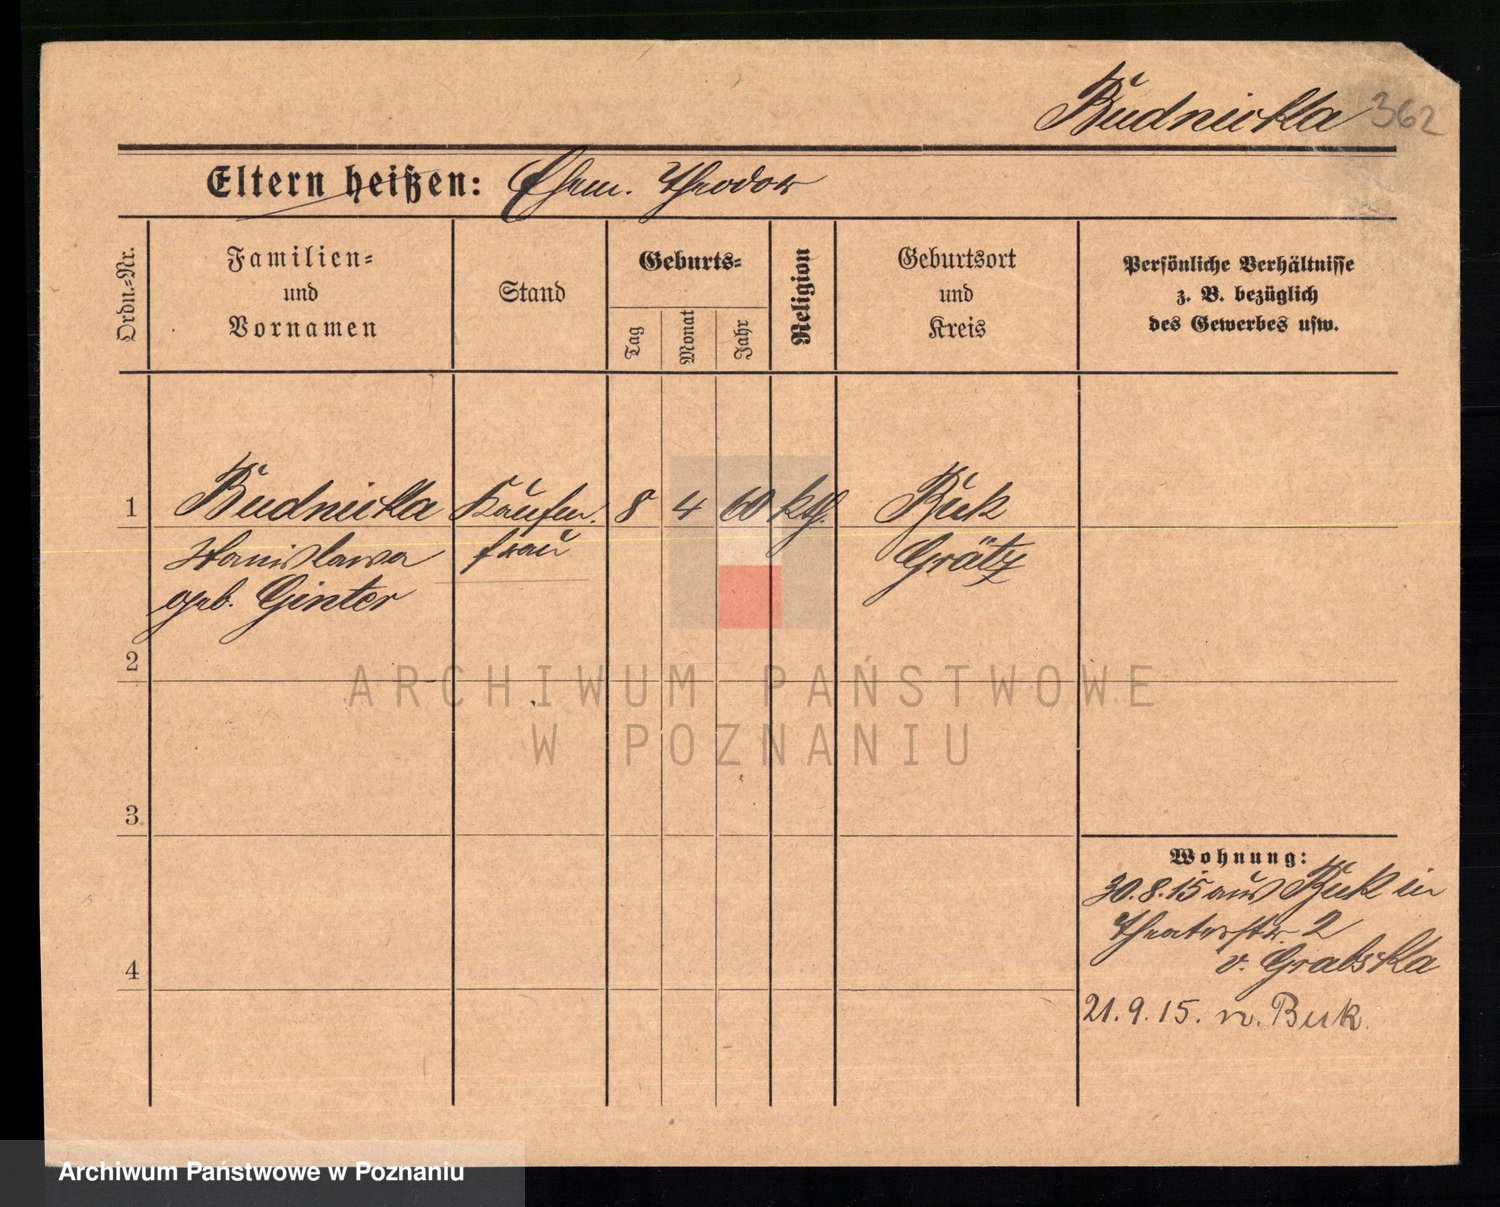 Budnicka 362
Eltern heißen: Ehem. Theodor
Ordn.-Nr.
Familien-
und
Vornamen
Stand
Geburts-
Tag
Monat
Jahr
Religion
Geburtsort
und
Kreis
Persönliche Verhältnisse
z. B. bezüglich
des Gewerbes usw.
1 Budnicka Kaufm. 8 4 60 kth. Buk
Stanislawa frau Grätz
geb. Ginter
2
ARCHIWUM PAŃSTWOWE
W POZNANIU
3
Wohnung:
30.8.15 aus Buk in
Theaterstr. 2
v. Grabska
4
21.9.15. n. Buk.
Archiwum Państwowe w Poznaniu